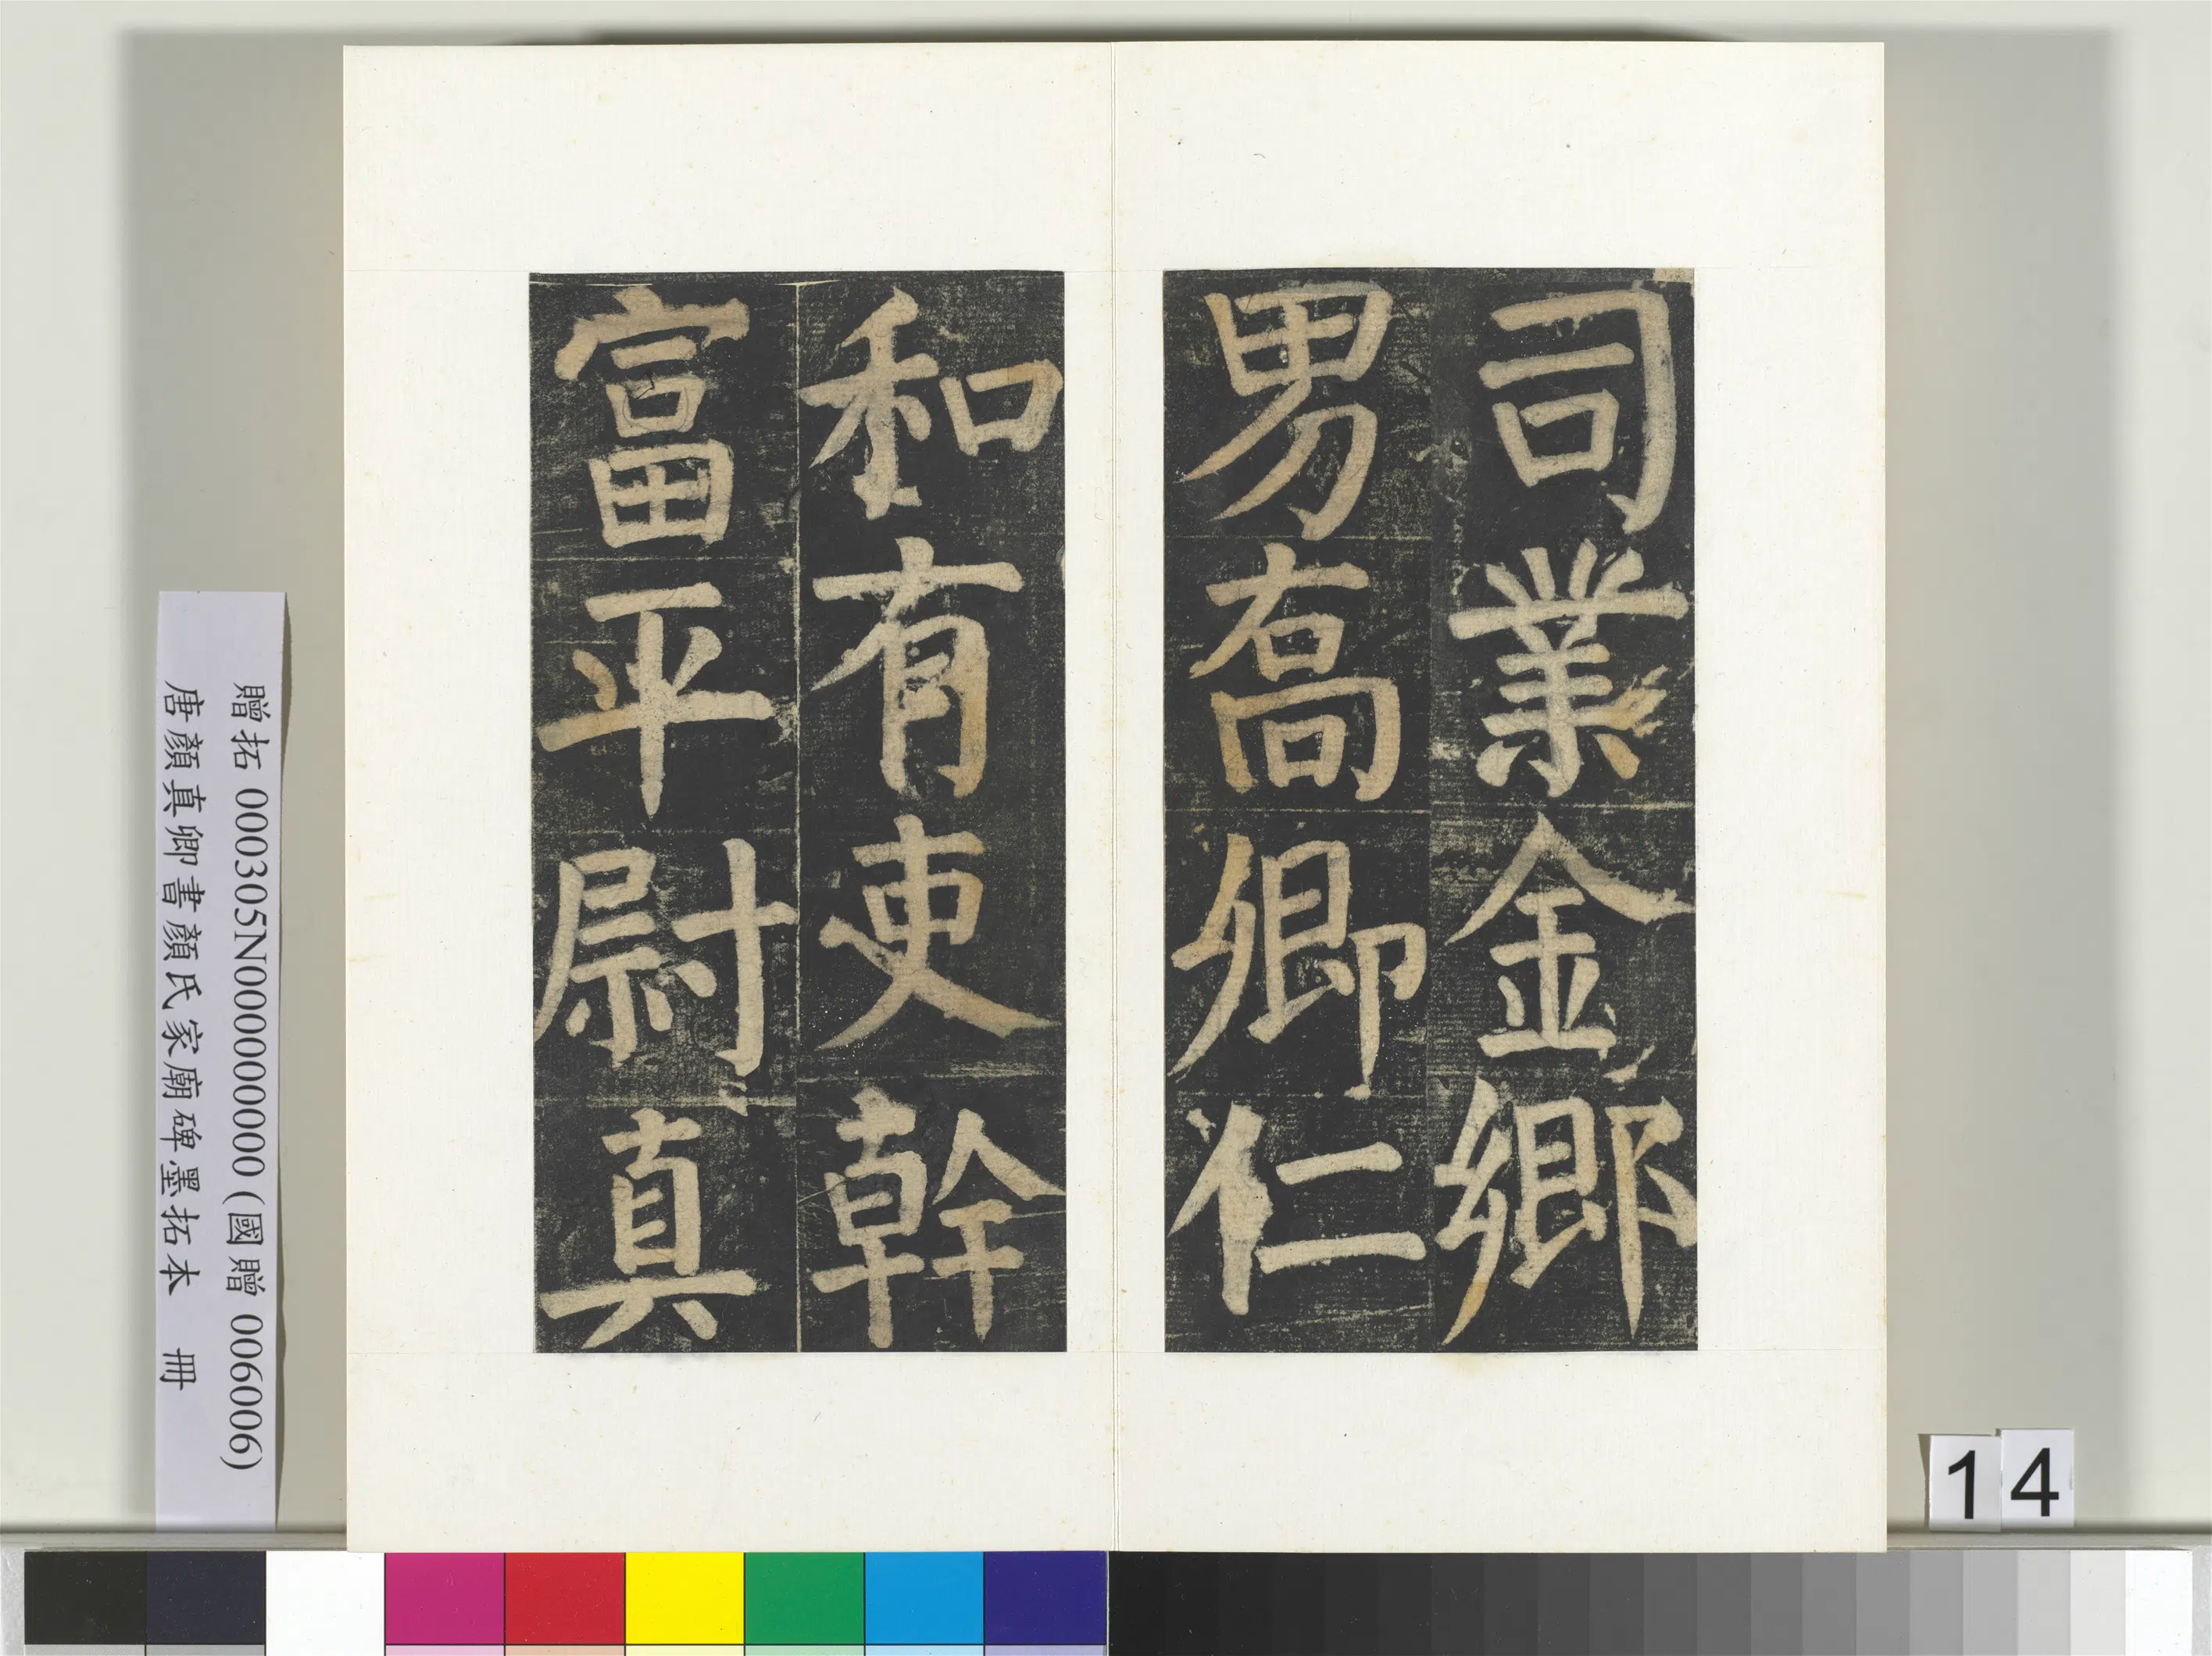 司業金鄉
男喬卿仁
和有吏幹
富平尉真
贈拓 000305N000000000 (國贈 006006)
唐顏真卿書顏氏家廟碑墨拓本 冊
14